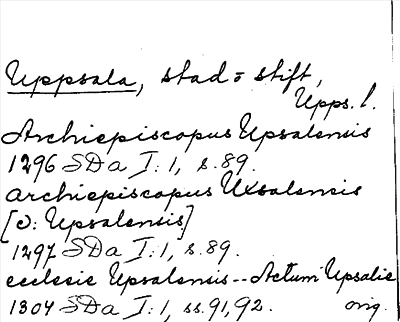 Uppsala, stad o stift,
Upps. l.
Archiepiscopus Upsalensis
1296 SDa I:1, s. 89.
archiepiscopus Uxsalensis
[ɔ: Upsalensis]
1297 SDa I:1, s. 89.
ecclesie Upsalensis -- Actum Upsalie
1304 SDa I:1, ss. 91, 92. orig.